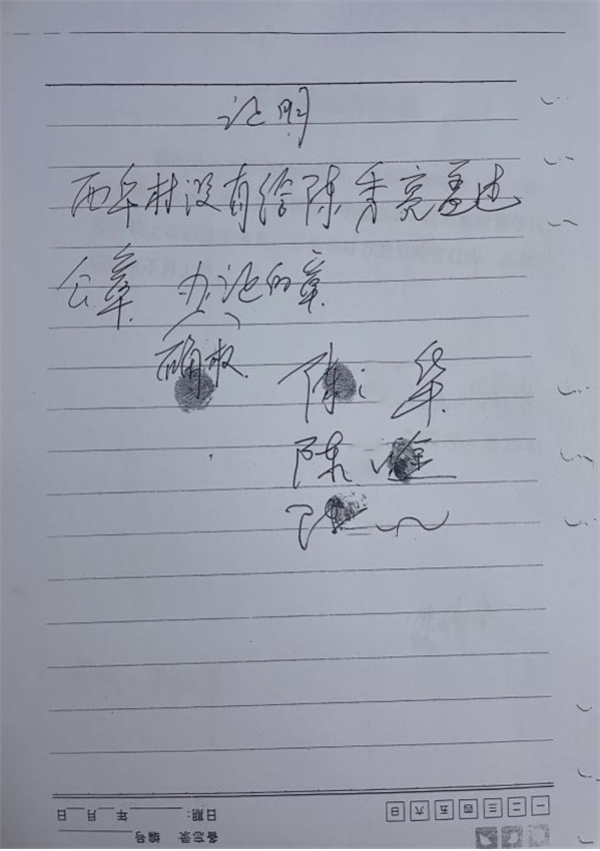 证明
西车村没有给陈秀亮盖过
公章 办证的章
确权
陈 华
陈
陈
日期：____年__月__日
备忘录 编号
一 二 三 四 五 六 日